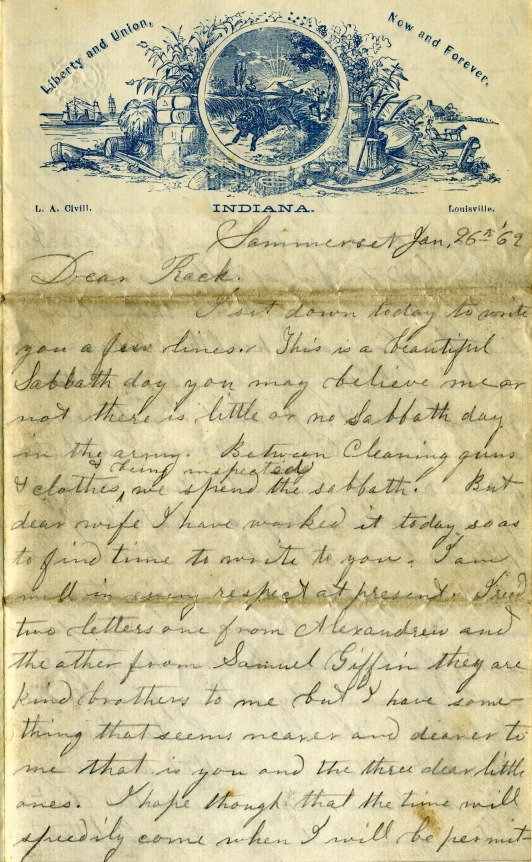 Liberty and Union, Now and Forever.
L. A. Civill. INDIANA. Louisville.
Sommerset Jan, 26th '62
Dear Rack.
I sit down today to write
you a few lines. This is a beautiful
Sabbath day you may believe me or
not there is little or no Sabbath day
in the army. Between Cleaning guns
& being inspected
& clothes, we spend the sabbath. But
dear wife I have worked it today so as
to find time to write to you. I am
well in every respect at present. I recd
two letters one from Alexandrew and
the other from Samuel Giffin they are
kind brothers to me but I have some-
thing that seems nearer and dearer to
me that is you and the three dear little
ones. I hope though that the time will
speedily come when I will be permit-